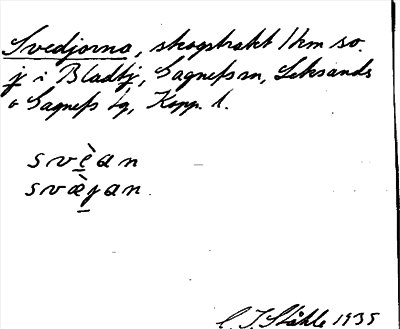 Svedjorna, skogstrakt 1 km so.
j i Bladbj, Gagnefs sn, Leksands
o Gagnefs tg, Kopp. l.
svè̱an
svæ̱̀jan
C. I. Ståhle 1935